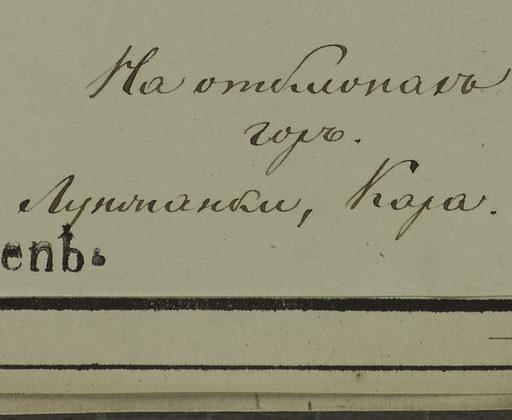 На отклонахъ
горъ.
Лунжанки, Кара.
епь.